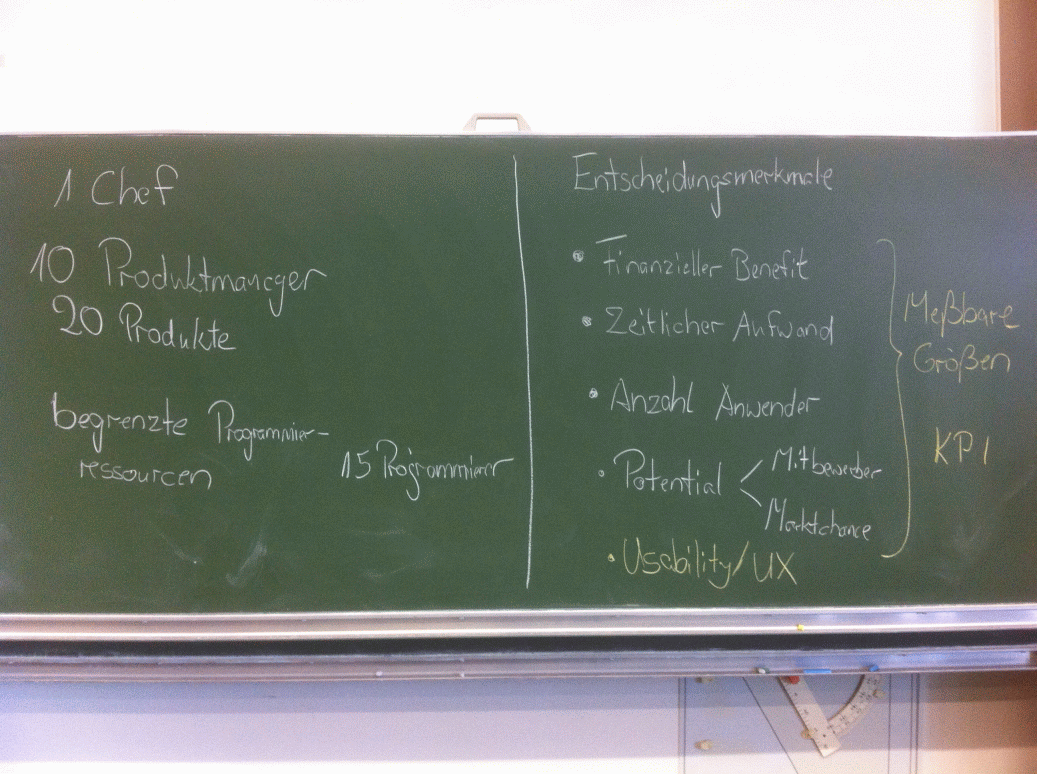 1 Chef
10 Produktmanager
20 Produkte
begrenzte Programmier-
ressourcen
15 Programmierer
Entscheidungsmerkmale
• Finanzieller Benefit
• Zeitlicher Aufwand
• Anzahl Anwender
• Potential < Mitbewerber
Marktchance
• Usability/UX
Meßbare
Größen
KPI